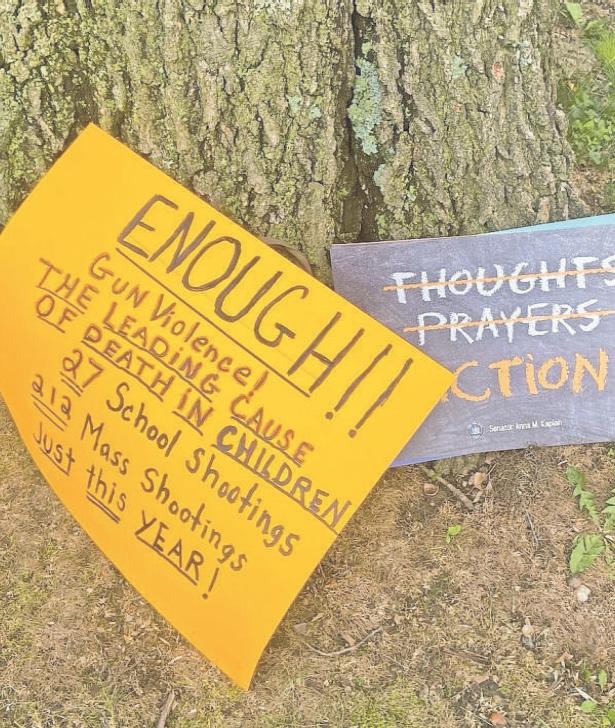 ENOUGH!!!
GUN Violence!
THE LEADING CAUSE
OF DEATH IN CHILDREN
27 School Shootings
212 Mass Shootings
Just this YEAR!
THOUGHTS
PRAYERS
CTION
Senator Anna M. Kaplan